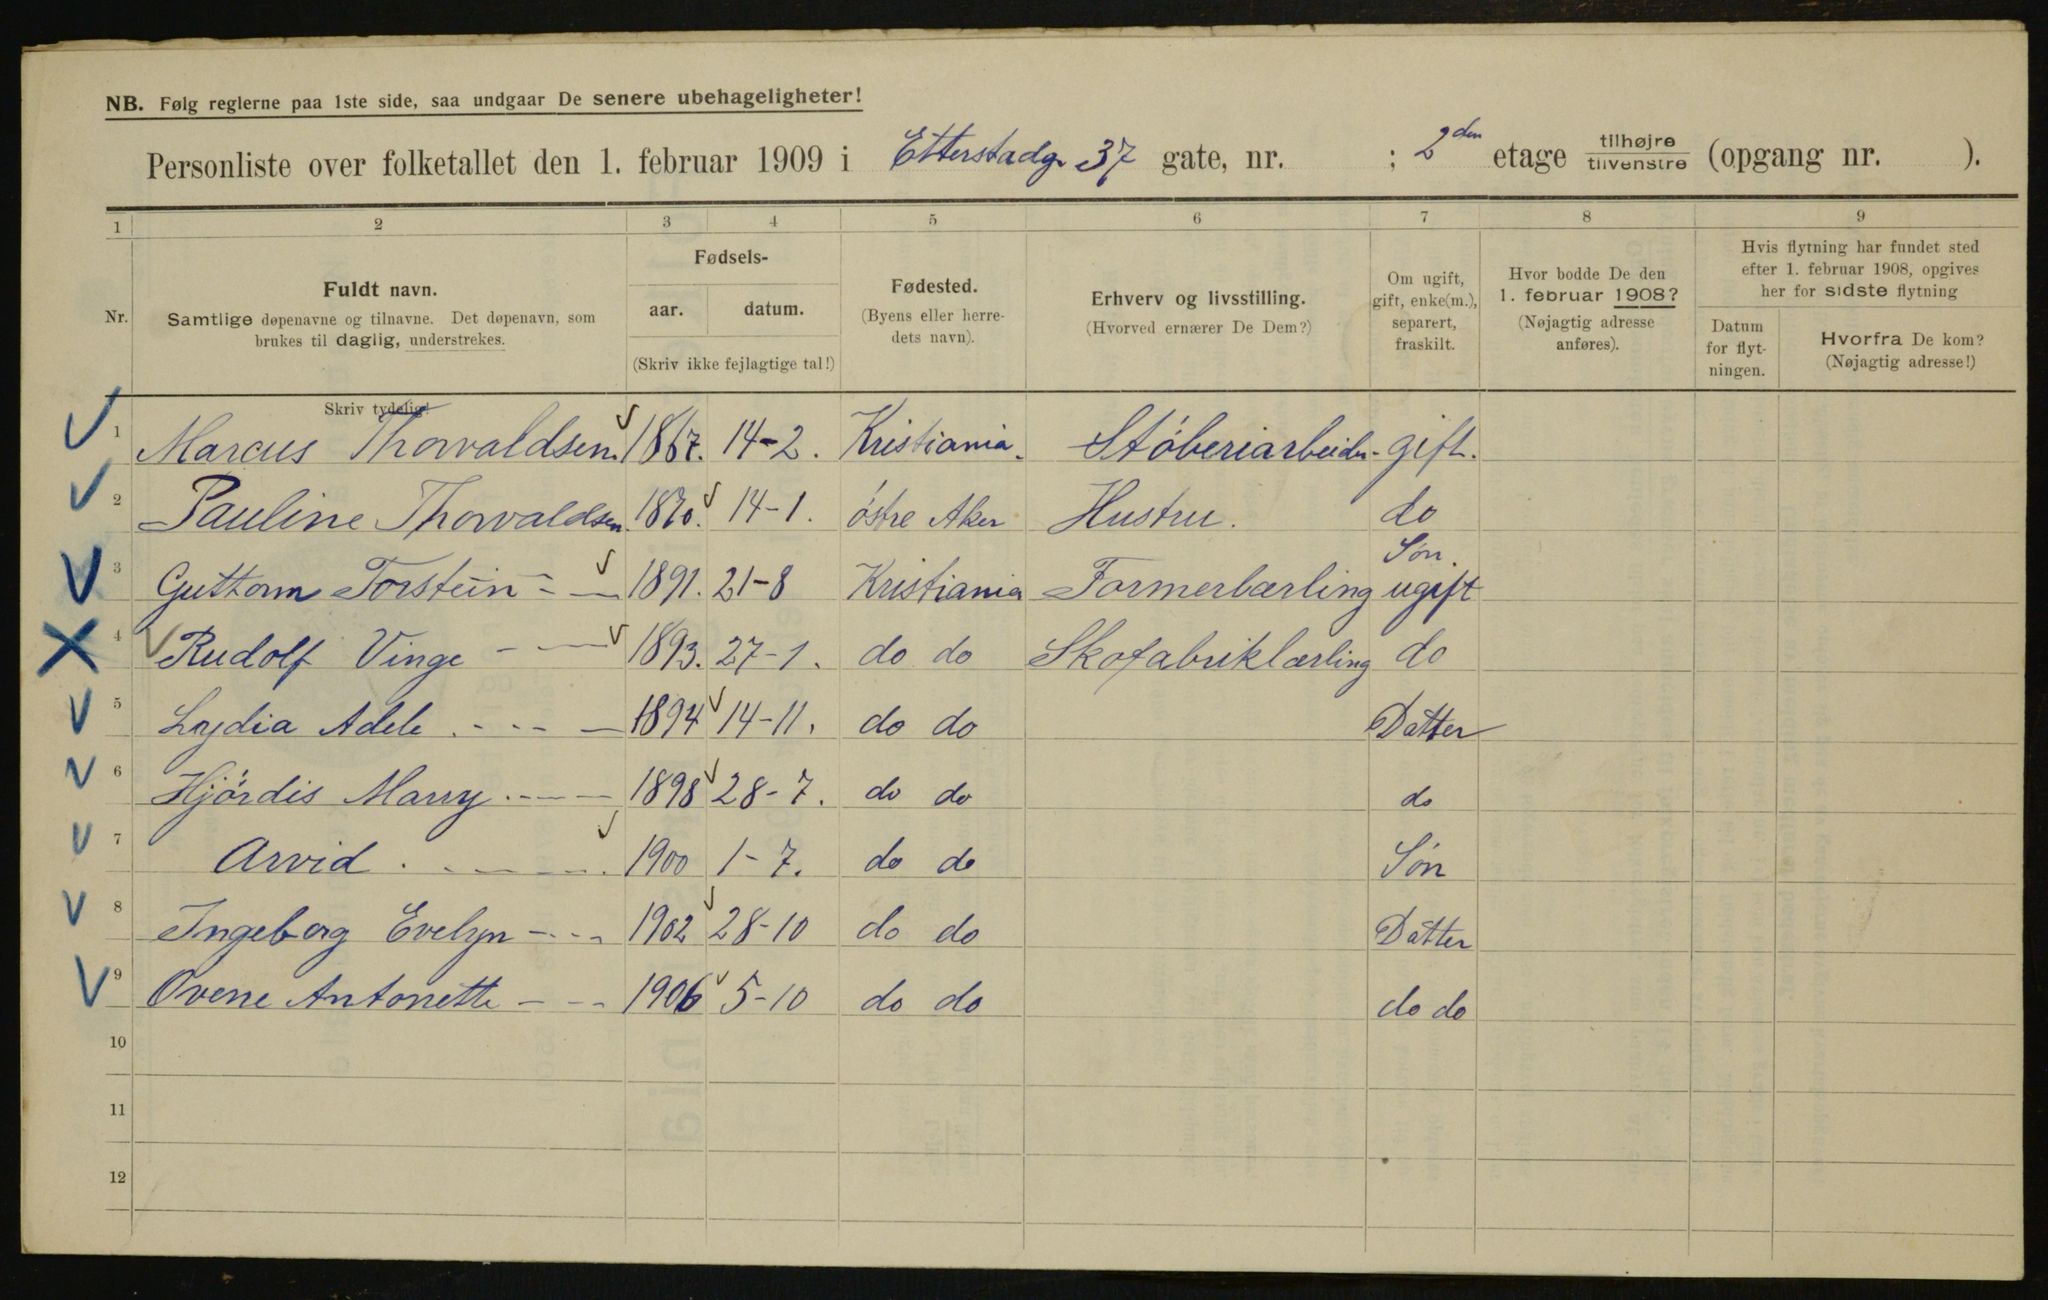 NB. Følg reglerne paa 1ste side, saa undgaar De senere ubehageligheter!
Personliste over folketallet den 1. februar 1909 i Etterstadg. 37 gate, nr. ; 2den etage tilhøjre tilvenstre (opgang nr. ).
1 2 3 4 5 6 7 8 9
Nr.
Fuldt navn.
Samtlige døpenavne og tilnavne. Det døpenavn, som
brukes til daglig, understrekes.
Skriv tydelig!
Fødsels-
aar. datum.
(Skriv ikke fejlagtige tal!)
Fødested.
(Byens eller herre-
dets navn).
Erhverv og livsstilling.
(Hvorved ernærer De Dem?)
Om ugift,
gift, enke(m.),
separert,
fraskilt.
Hvor bodde De den
1. februar 1908?
(Nøjagtig adresse
anføres).
Hvis flytning har fundet sted
efter 1. februar 1908, opgives
her for sidste flytning
Datum
for flyt-
ningen.
Hvorfra De kom?
(Nøjagtig adresse!)
1 Marcus Thorvaldsen. 1867. 14-2. Kristiania. Støberiarbeider- gift.
2 Pauline Thorvaldsen. 1870. 14-1. østre Aker Hustru. do
3 Guttorm Torstein - — 1891. 21-8 Kristiania Formerlærling Søn ugift
4 Rudolf Vinge - — 1893. 27-1. do do Skofabriklærling do
5 Lydia Adele . - - - — 1894 14-11. do do Datter
6 Hjördis Marry . - - — 1898 28-7. do do do
7 Arvid . - - - - . 1900 1-7. do do Søn
8 Ingeborg Evelyn - - - 1902 28-10 do do Datter
9 Ovene Antonette - - - 1906 5-10 do do do do
10
11
12